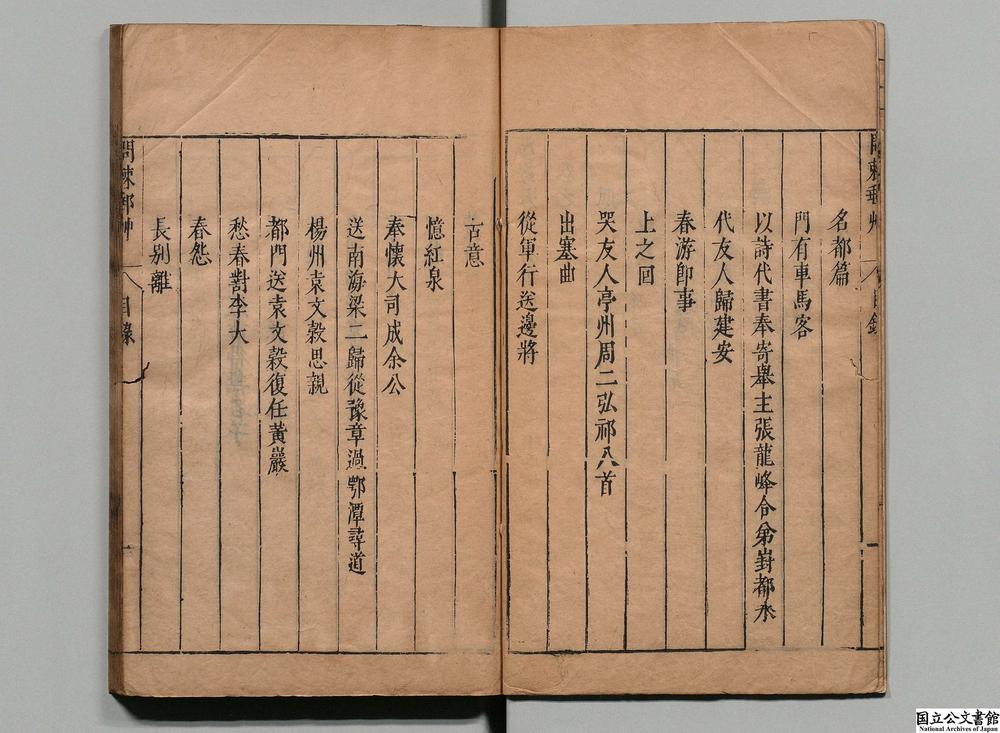 名都篇
門有車馬客
以詩代書奉寄舉主張龍峰令弟封都水
代友人歸建安
春游即事
上之回
哭友人亭州周二弘祁八首
出塞曲
從軍行送邊將
古意
憶紅泉
奉懷大司成余公
送南海梁二歸從豫章過鄂潭尋道
楊州袁文穀思親
都門送袁文穀復任黃巖
愁春對李大
春怨
長別離
目錄
一
国立公文書館
National Archives of Japan